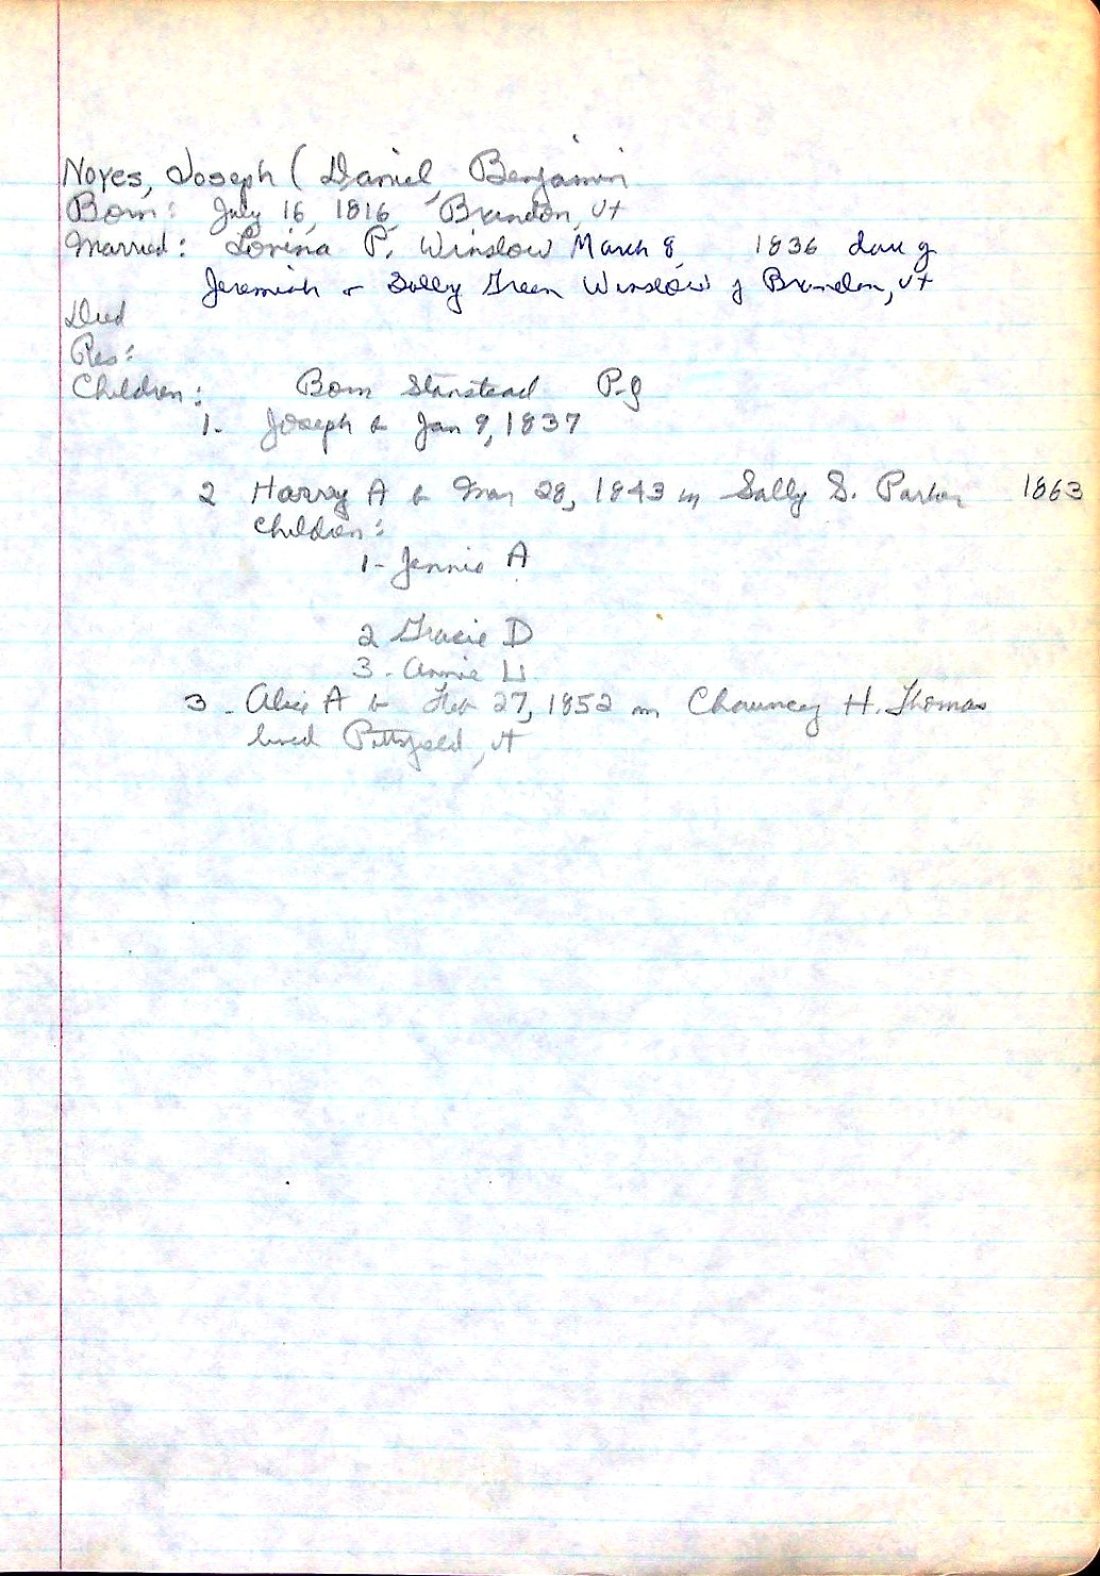 Noyes, Joseph (Daniel, Benjamin
Born: July 16, 1816, Brandon, Vt
Married: Lorina P. Winslow March 8, 1836 dau of
Jeremiah & Sally Green Winslow of Brandon, Vt
Died
Res:
Children: Born Stanstead P.Q
1. Joseph b Jan 9, 1837
2 Harry A b Mar 28, 1843 m Sally S. Parker 1863
Children:
1- Jennie A
2 Gracie D
3. Annie
3. Alice A b Feb 27, 1852 m Chauncey H. Thomas
lived Pittsfield, Vt